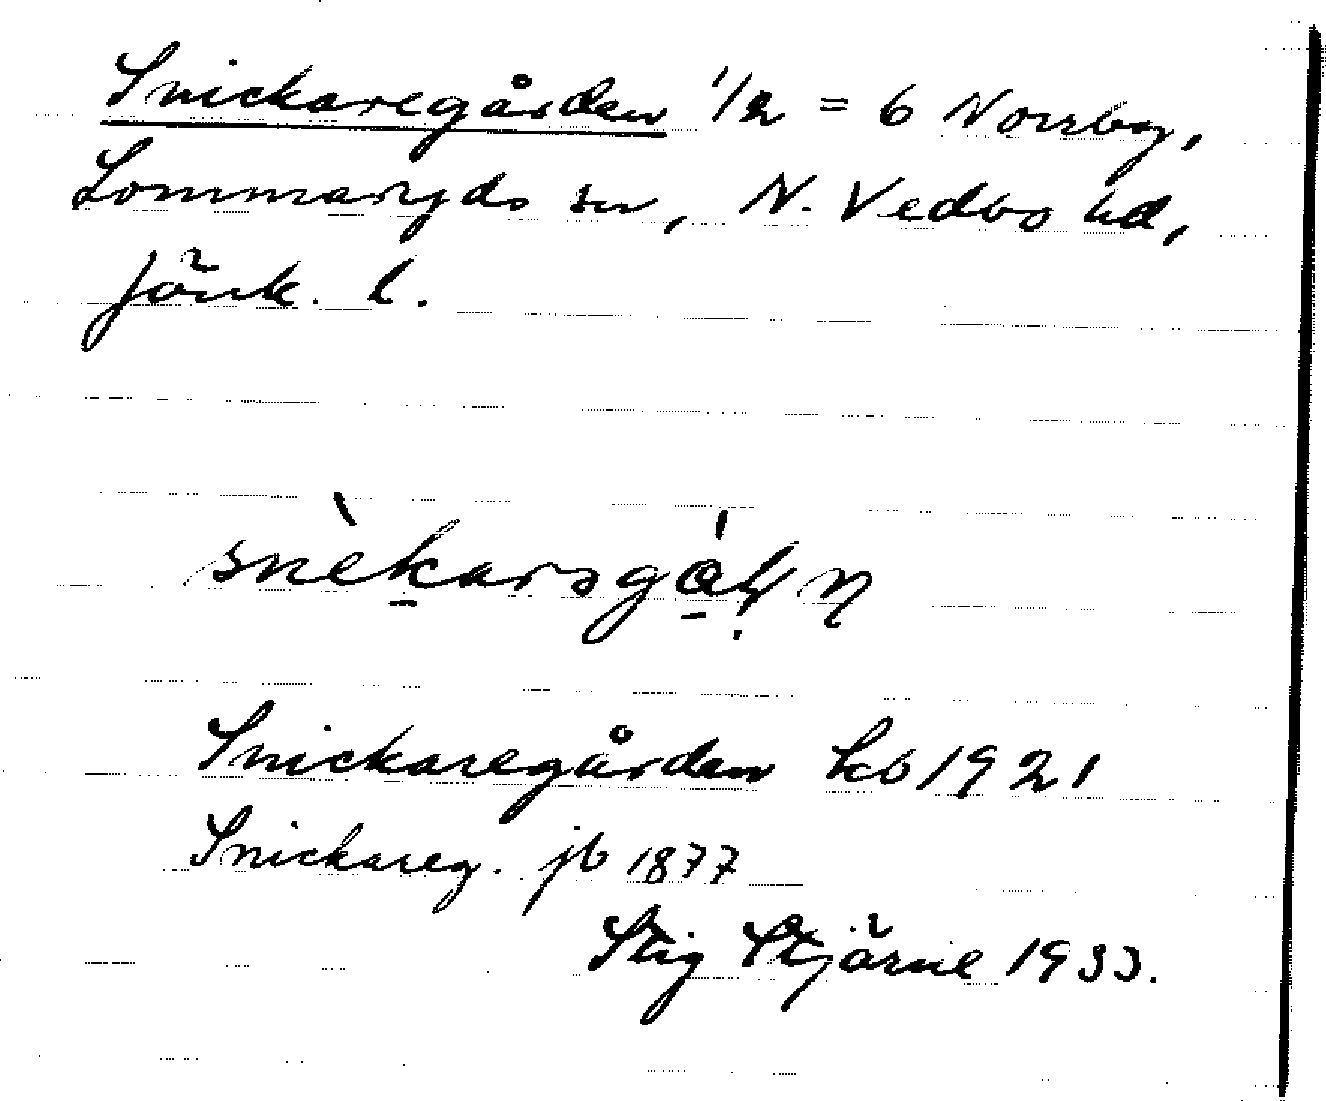 Snickaregården 1/2 = 6 Norrby,
Lommaryds sn, N. Vedbo hd,
Jönk. l.
Snickaregården kb 1921
Snickareg. jb 1877
Stig Stjärne 1933.